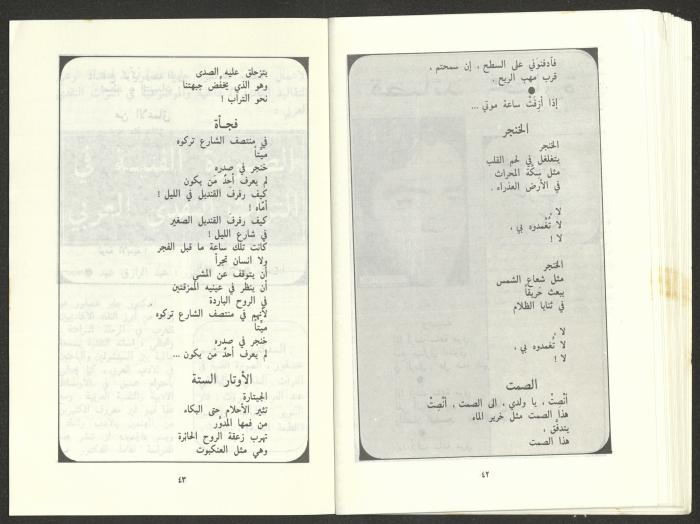 فأدفنوني على السطح ، إن سمحتم ،
قرب مهب الريح .
●
إذا أزفت ساعة موتي ...
الخنجر
الخنجر
يتغلغل في لحم القلب
مثل سكّة المحراث
في الأرض العذراء .
لا ،
لا تُغمدوه بي ،
لا !
الخنجر
مثل شعاع الشمس
يبعث حريقاً
في ثنايا الظلام
لا ،
لا تُغمدوه بي ،
لا !
الصمت
أنْصِتْ ، يا ولدي ، الى الصمت ، أنْصِتْ
هذا الصمت مثل خرير الماء
يتدفّق ،
هذا الصمت
٤٢
يتزحلق عليه الصدى
وهو الذي يخفّض جبهتنا
نحو التراب !
فجأة
في منتصف الشارع تركوه
ميّتاً
خنجر في صدره
لم يعرف أحدٌ مَن يكون
كيف رفرفَ القنديل في الليل !
أمّاه !
كيف رفرفَ القنديل الصغير
في شارع الليل !
كانت تلك ساعة ما قبل الفجر
ولا انسان تجرأ
أن يتوقف عن المشي
أن ينظر في عينيه الممزقتين
في الروح الباردة
لأنهم في منتصف الشارع تركوه
ميّتاً
خنجر في صدره
لم يعرف أحدٌ مَن يكون ...
الأوتار الستة
الجيتارة
تثير الأحلام حتى البكاء
من فمها المدوّر
تهرب زعقة الروح الحائرة
وهي مثل العنكبوت
٤٣